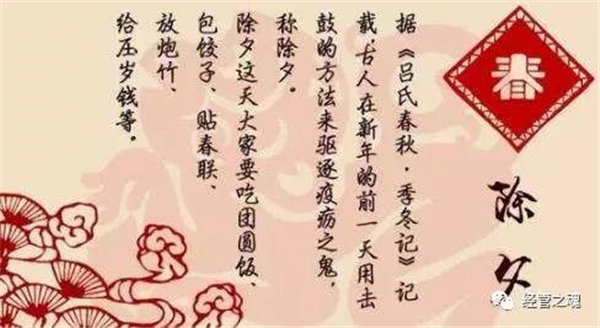 春
除夕
据《吕氏春秋·季冬记》记
载，古人在新年的前一天用击
鼓的方法来驱逐疫疬之鬼，
称除夕。
除夕这天大家要吃团圆饭、
包饺子、贴春联、
放炮竹、
给压岁钱等。
经营之魂